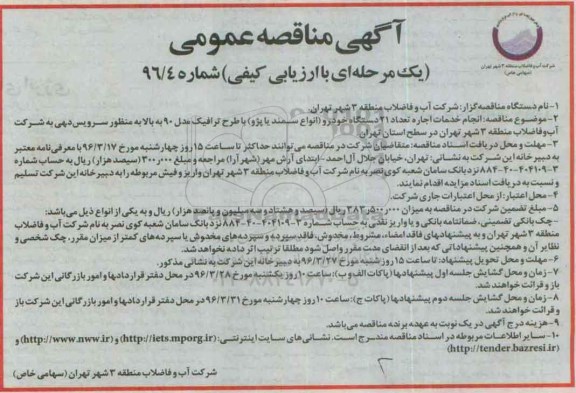 شرکت آب و فاضلاب منطقه ۳ شهر تهران
(سهامی خاص)
آگهی مناقصه عمومی
(یک مرحله‌ای با ارزیابی کیفی) شماره ۹۶/۴
۱- نام دستگاه مناقصه‌گزار: شرکت آب و فاضلاب منطقه ۳ شهر تهران
۲- موضوع مناقصه: انجام خدمات اجاره تعداد ۲۱ دستگاه خودرو (انواع سمند یا پژو) با طرح ترافیک مدل ۹۰ به بالا به منظور سرویس‌دهی به شرکت
آب و فاضلاب منطقه ۳ شهر تهران در سطح استان تهران
۳- مهلت و محل دریافت اسناد مناقصه: متقاضیان شرکت در مناقصه می‌توانند حداکثر تا ساعت ۱۵ روز چهارشنبه مورخ ۹۶/۳/۱۷ با معرفی‌نامه معتبر
به دبیرخانه این شرکت به نشانی: تهران، خیابان جلال آل‌احمد - ابتدای آرش مهر (شهرآرا) مراجعه و مبلغ ۳۰۰،۰۰۰ (سیصد هزار) ریال به حساب شماره
۸۸۴-۴۰-۴۰۴۱۰۹-۳ نزد بانک سامان شعبه کوی نصر به نام شرکت آب و فاضلاب منطقه ۳ شهر تهران واریز و فیش مربوطه را به دبیرخانه این شرکت تسلیم
و نسبت به دریافت اسناد مزایده اقدام نمایند.
۴- محل اعتبار: از محل اعتبارات جاری شرکت.
۵- مبلغ تضمین شرکت در مناقصه به میزان ۳۸۲،۵۰۰،۰۰۰ ریال (سیصد و هشتاد و دو میلیون و پانصد هزار) ریال و به یکی از انواع ذیل می‌باشد:
- چک بانکی تضمینی، ضمانتنامه بانکی و یا واریز نقدی به حساب شماره ۸۸۴-۴۰-۴۰۴۱۰۹-۳ نزد بانک سامان شعبه کوی نصر به نام شرکت آب و فاضلاب
منطقه ۳ شهر تهران و به پیشنهادهای فاقد امضاء، مشروط، مخدوش، فاقد سپرده و سپرده‌های مخدوش یا سپرده‌های کمتر از میزان مقرر، چک شخصی و
نظایر آن و همچنین پیشنهاداتی که بعد از انقضای مدت مقرر واصل شود مطلقا ترتیب اثر داده نخواهد شد.
۶- مهلت و محل تحویل پیشنهاد: تا ساعت ۱۵ روز شنبه مورخ ۹۶/۳/۲۷ به دبیرخانه این شرکت به نشانی مذکور.
۷- زمان و محل گشایش جلسه اول پیشنهادها (پاکات الف و ب): ساعت ۱۰ روز یکشنبه مورخ ۹۶/۳/۲۸ در محل دفتر قراردادها و امور بازرگانی این شرکت
باز و قرائت خواهند شد.
۸- زمان و محل گشایش جلسه دوم پیشنهادها (پاکات ج): ساعت ۱۰ روز چهارشنبه مورخ ۹۶/۳/۳۱ در محل دفتر قراردادها و امور بازرگانی این شرکت باز
و قرائت خواهند شد.
۹- هزینه درج آگهی در یک نوبت به عهده برنده مناقصه می‌باشد.
۱۰- سایر اطلاعات مربوطه در اسناد مناقصه مندرج است. نشانی‌های سایت اینترنتی: (http://iets.mporg.ir) و (http://www.nww.ir) و
(http://tender.bazresi.ir)
شرکت آب و فاضلاب منطقه ۳ شهر تهران (سهامی خاص)